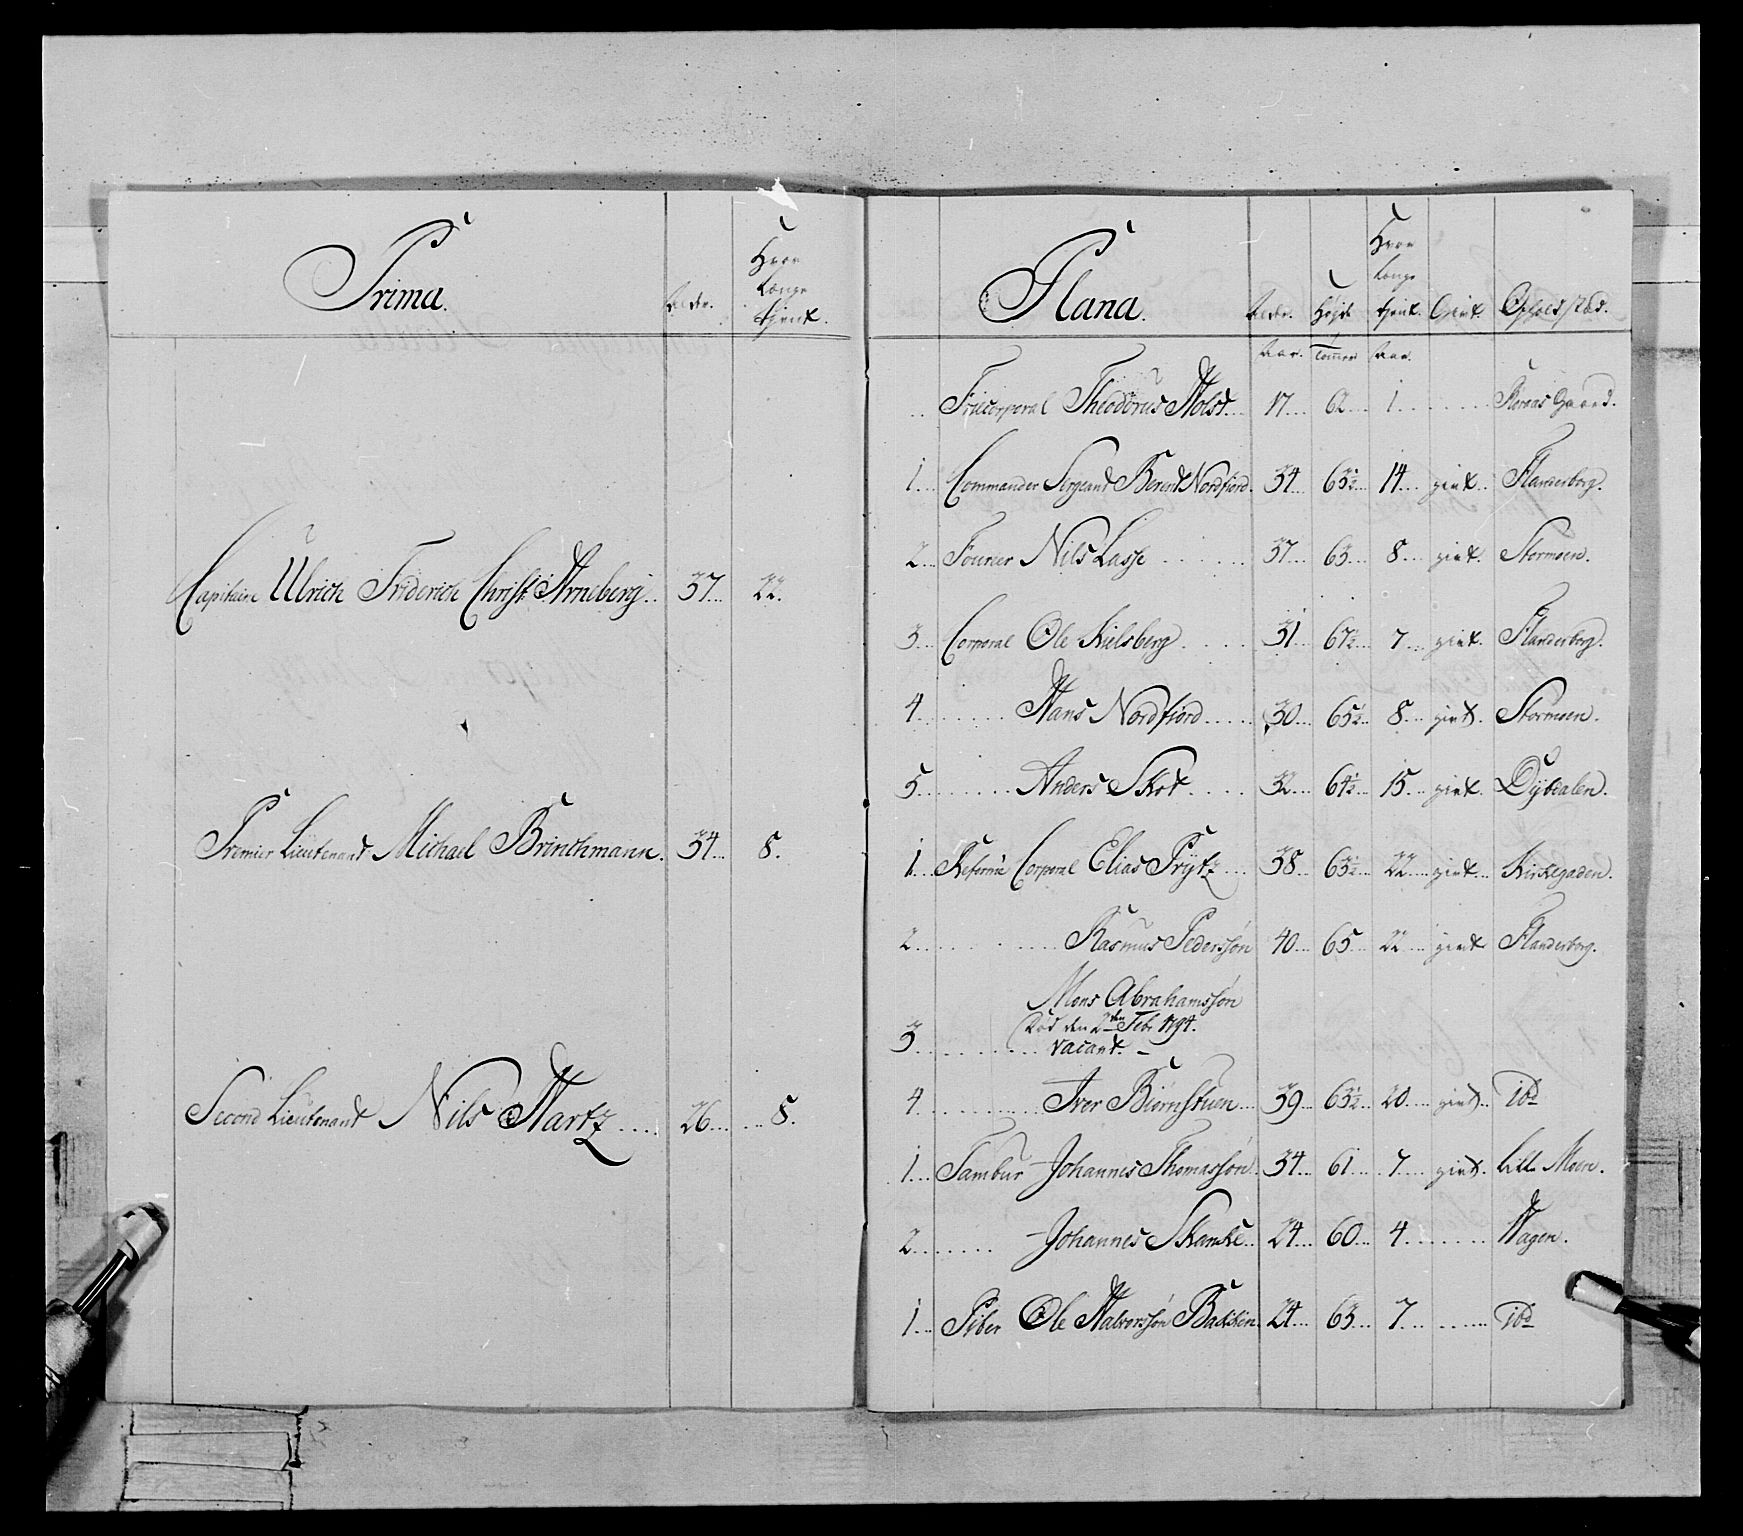 Prima.
Alder.
Hvor
Længe
tjent.
Capitaine Ulrich Friderich Christ. Arneberg.. 37... 22.
Premier Lieutenant Michael Brinchmann. 34... 8.
Second Lieutenant Nils Hartz..... 26... ...8.
Plana.
Alder.
Højde
Hvor
længe
tjent.
Givt.
Opholdsted.
Aar. Tommer Aar.
Fricorporal Theodorus Holst... 17... 62... 1........ Røraas Gaard.
1... Commander Sergeant Berent Nordfjord. 34... 63½.. 14... givt... Flanderborg.
2... Fourier Nils Lasse ...... 37... 63... 8... givt. Stormoen.
3... Corporal Ole Kielsberg..... 31... 67½.. 7... givt. Flanderborg.
4....... Hans Nordfjord..... 30... 65½.. 8... givt. Stormoen.
5....... Anders Skot..... 32... 64½.. 15... givt. Dybdalen.
1... Reformé Corporal Elias Prytz... 38... 63½.. 22... givt... Kirkegaden.
2....... Rasmus Pederssøn 40... 65... 22... givt Flanderborg.
Mons Abrahamssøn
Død den 2den Febr 1794.
3......... vacant. –
4......... Iver Biørnstuen... 39... 63½.. 20... givt... ibd
1... Tambur Johannes Thomassøn 34... 61... 7... givt. Lille Moen.
2....... Johannes Skanke.. 24... 60... 4....... Hagen.
1... Piber Ole Halvorssøn Bakken. 24... 63... 7... ...... ibd